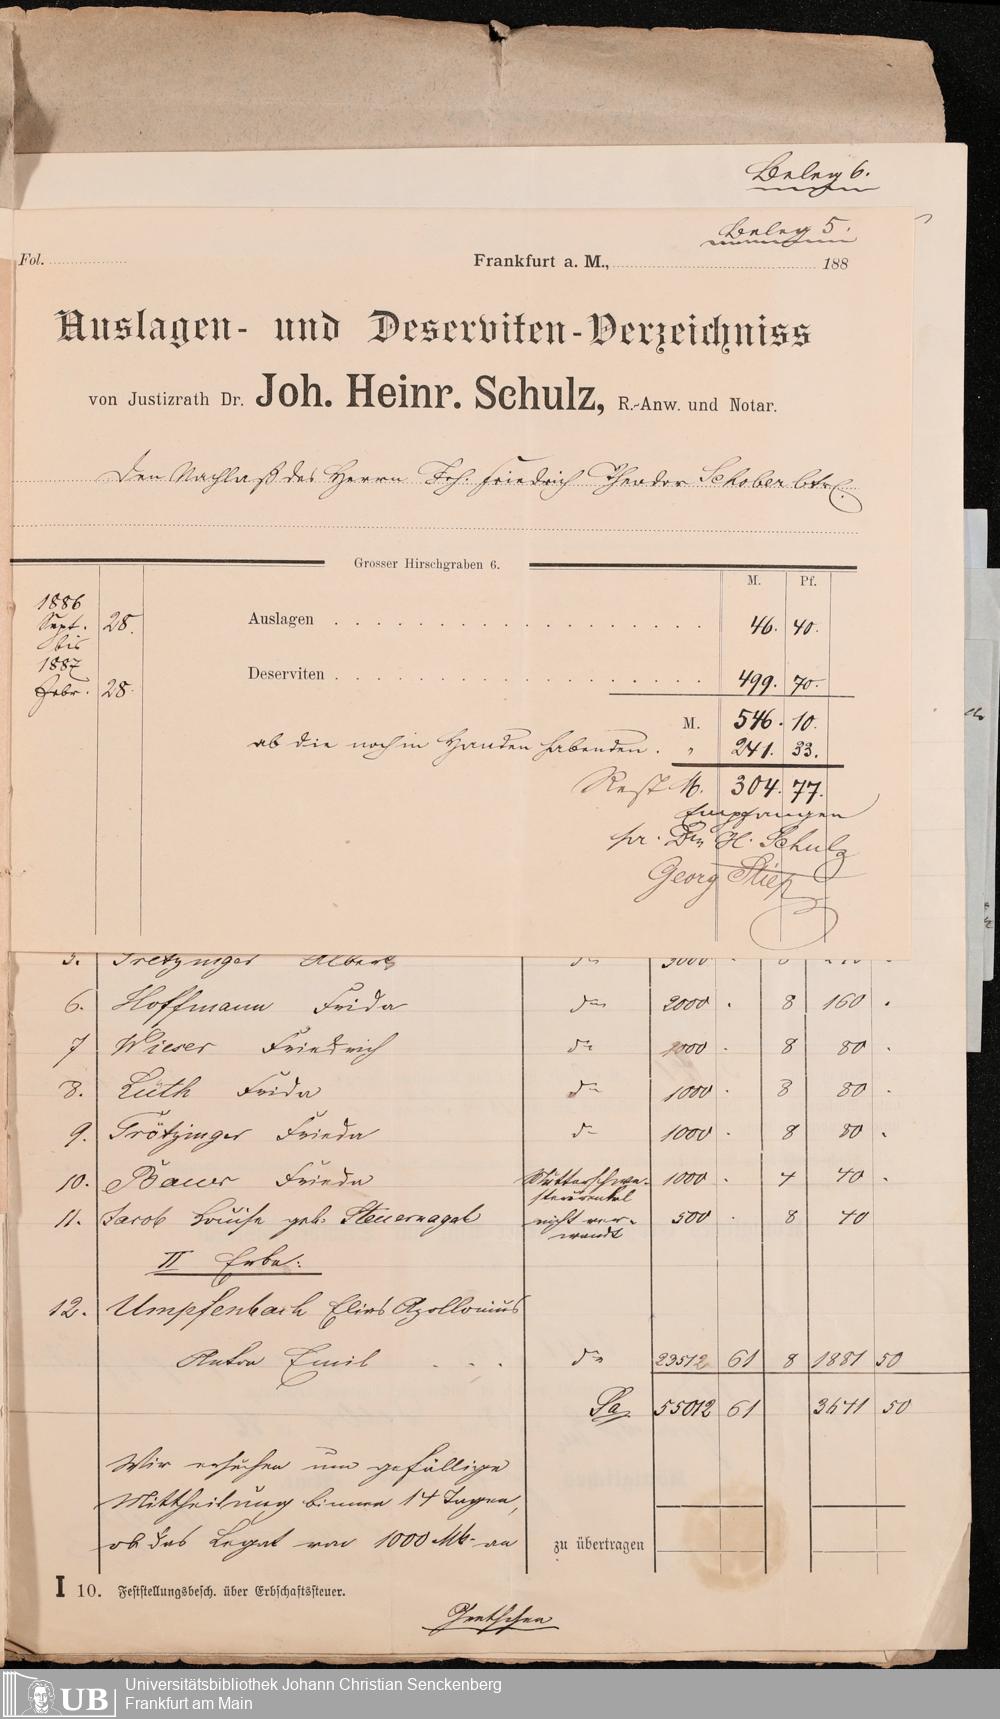 Beleg 6.
Beleg 5.
Fol.
Frankfurt a. M., 188
Auslagen- und Deserviten-Verzeichniss
von Justizrath Dr. Joh. Heinr. Schulz, R.-Anw. und Notar.
Den Nachlaß des Herrn Joh. Friedrich Theodor Schober betr.
Grosser Hirschgraben 6.
M. Pf.
1886
Sept. 28.
bis
1887
Febr. 28.
Auslagen 46. 40.
Deserviten 499. 70.
M. 546. 10.
ab die noch in Handen habenden. " 241. 33.
Rest M. 304. 77.
Empfangen
pr. Dr. H. Schulz
Georg Stiep
5. Tretzinger Albert do 3000 . 8 240 .
6. Hoffmann Frida do 2000 . 8 160 .
7 Wieser Friedrich do 1000 . 8 80 .
8. Lüth Frida do 1000 . 8 80 .
9. Trötzinger Frieda do 1000 . 8 80 .
10. Bauer Frieda Mutterschwe- 1000 . 4 40 .
sterenkel
11. Jacob Louise geb. Steuernagel nicht ver- 500 . 8 40
wandt
II Erbe:
12. Umpfenbach Elias Apollonius
Anton Emil . . . do 23512 61 8 1881 50
Sa. 55012 61 3641 50
Wir ersuchen um gefällige
Mittheilung binnen 14 Tagen,
ob das Legat von 1000 Mk. an
zu übertragen
I 10. Feststellungsbesch. über Erbschaftssteuer.
Gretchen
UB Universitätsbibliothek Johann Christian Senckenberg
Frankfurt am Main